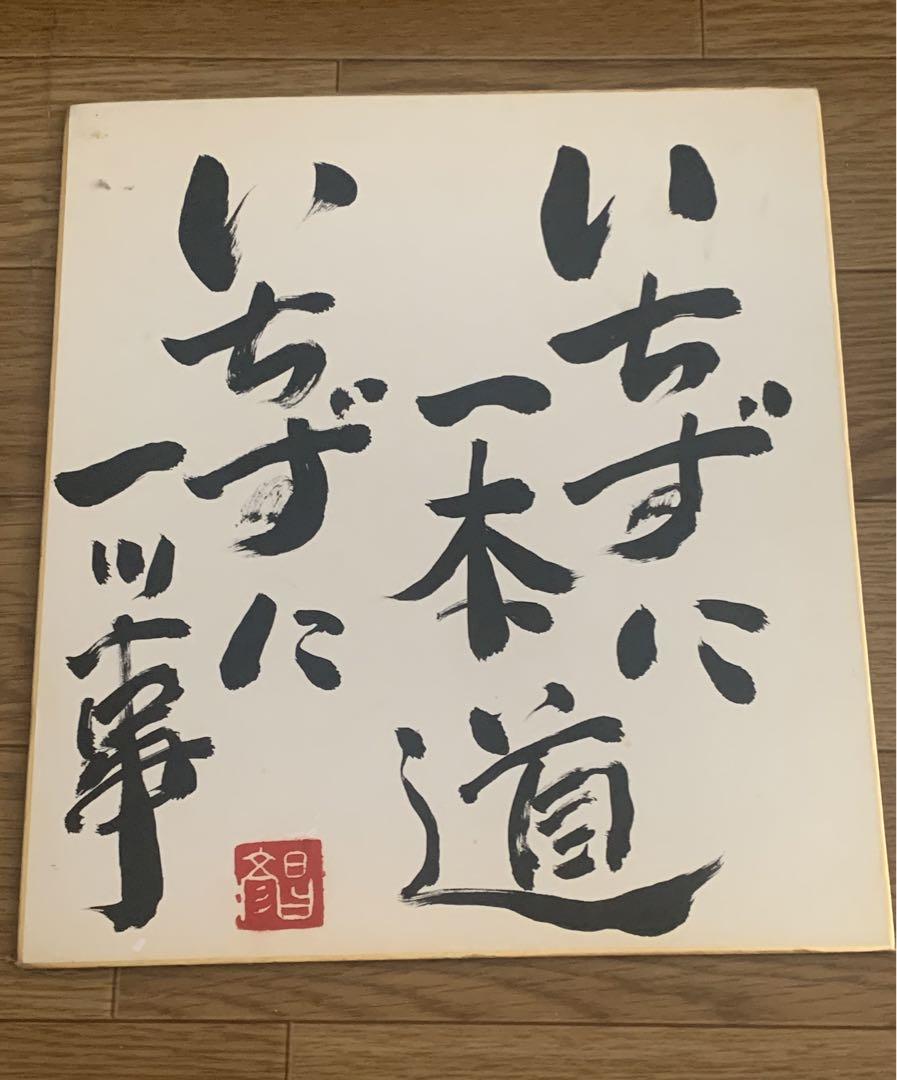 いちずに
一本道
いちずに
一ツ事